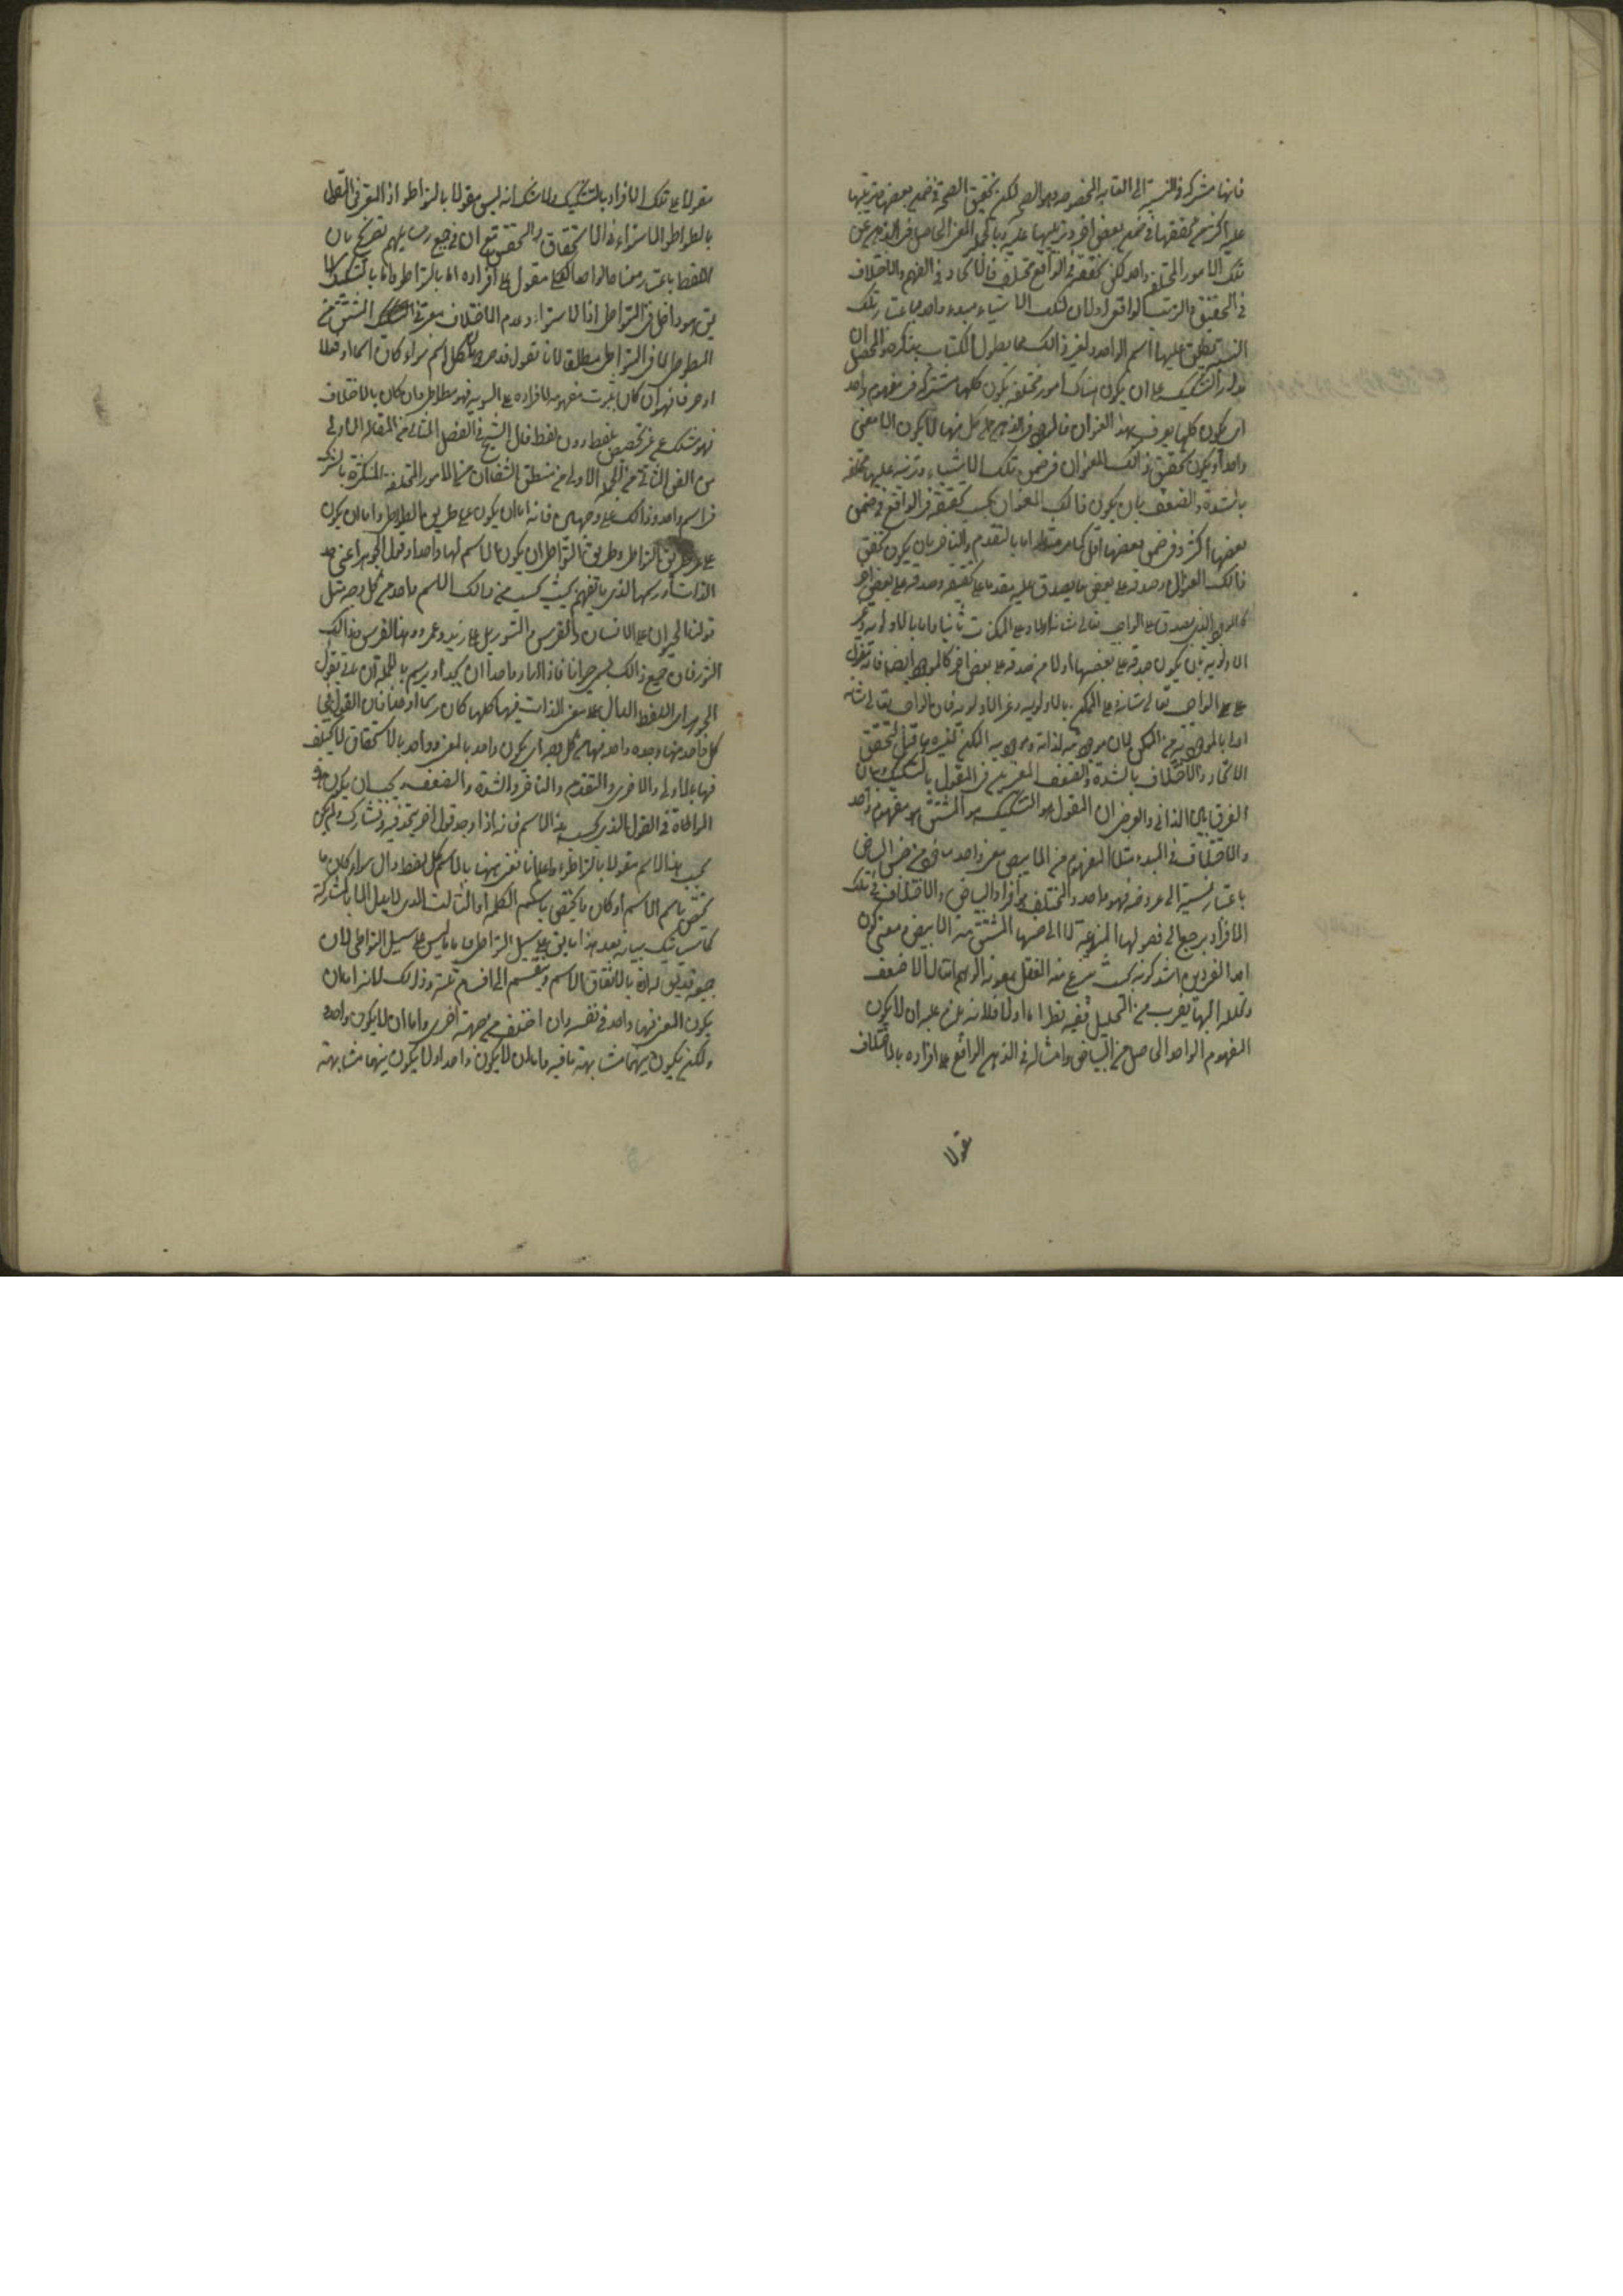 فانها مشتركة في النسبة الى الغاية المخصوصة وهو الصحة لكن تحقيق الصحة في ضمن بعضها وترتبها
عليه اكثر من تحققها في ضمن بعض اخر وترتبها عليه وبالجملة المعنى الحاصل في الذهن عن
تلك الامور المختلفة واحد لكن تحققه في الواقع مختلف فالاتحاد في الفهم والاختلاف
في التحقق والترتب الواقعي اولان لتلك الاشياء مبدء واحد باعتبار تلك
النسبة يطلق عليها اسم الواحد ولغير ذالك مما يطول الكتاب بذكره والمحصل ان
مدار التشكيك على ان يكون هناك امور مختلفة يكون كلها مشتركة في مفهوم واحد
اى يكون كلها يعرف بهذا العنوان فالمراد في الذهن من كل منها لا يكون الا معنى
واحدا ويكون تحقق ذالك العنوان في ضمن تلك الاشياء وترتبه عليها مختلفة
بالشدة والضعف بان يكون ذالك العنوان بحسب تحققه في الواقع في ضمن
بعضها اكثر وفي ضمن بعضها اقل كما مر مثله اما بالتقدم والتاخر بان يكون تحقق
ذالك العنوان وصدقه على بعض ما يصدق عليه مقدما على تحققه وصدقه على بعض اخر
كالموجود الذي يصدق على الواجب تعالى شانه اولا وعلى الممكنات ثانيا واما بالاولوية وغير
الاولوية بان يكون صدقه على بعضها اولى من صدقه على بعض اخر كالموجود ايضا فانه يقول
على الواجب تعالى شانه وعلى الممكن بالاولوية وغير الاولوية فان الواجب تعالى شانه
اولى بالموجودية من الممكن لان موجوديته لذاته وموجودية الممكن لغيره وما قيل لتحقق
الاتحاد والاختلاف بالشدة والضعف المعتبرين في المقول بالتشكيك وبيان
الفرق بين الذاتي والعرضي ان المقول بالتشكيك هو المشتق هو مفهوم واحد
والاختلاف في المبدء مثلا المفهوم من الابيض معنى واحد ماخوذ من جنس البياض
باعتبار نسبته الى معروضه فهو واحد والمختلف هو افراد البياض والاختلاف في تلك
الافراد يرجع الى فصولها المنوعة لا الى جنسها المشتق منه الابيض ومعنى كون
احد الفردين اشد كونه بحيث ينتزع منه العقل بمعونة الوهم امثال الاضعف
وتحلله اليها بضرب من التحليل ففيه نظر اما اولا فلانه يلزم عليه ان لا يكون
المفهوم الواحد الحاصل من البياض وامثاله في الذهن الواقع على افراده بالاختلاف
مقولا
مقولا على تلك الافراد بالتشكيك ولا شك انه ليس مقولا بالتواطؤ اذ المعتبر في المقول
بالتواطؤ الاستواء في الاستحقاق والتحقق مع ان في جميع رسايلهم تصريح بان
اللفظ باعتبار معناه الواحد الكلي مقول على افراده اما بالتواطؤ واما بالتشكيك لا
يق هو داخل في التواطؤ اذ الاستواء وعدم الاختلاف معتبر في التشكيك المشتق من
المتواطي لا في التواطؤ مطلقا لانا نقول قد صرحوا بان كل اسم سواء كان اسما او فعلا
او حرفا فهو ان كان ثبوت مفهومه لافراده على السوية فهو متواطؤ وان كان بالاختلاف
فهو مشكك من غير تخصيص بلفظ دون لفظ قال الشيخ في الفصل الثاني من المقالة الاولى
من الفن الثاني من الجملة الاولى من منطق الشفا ان من الامور المختلفة المتكثرة بالشركة
في اسم واحد وذالك على وجهين فانه اما ان يكون على طريق التواطؤ واما ان يكون
على غير طريق التواطؤ وطريق التواطؤ ان يكون الاسم لها واحدا وقول الجوهر اعنى حد
الذات او رسمها الذي ما يفهم بحيث يحسب من ذالك الاسم واحد من كل وجه مثل
قولنا الحيوان على الانسان والفرس والثور بل على زيد وعمرو وهذا الفرس وذالك
الثور فان جميع ذالك يسمى حيوانا فاذا اراد واحدا ان يحد او يرسم بالجملة ان ياتي بقول
الجوهر اى اللفظ الدال على معنى الذات فيها كلها كان رسما او حدا فان القول في
كل واحد منها وجده واحد منها من كل وجه اى يكون واحد بالمعنى وواحد بالاستحقاق لا يختلف
فيها بالاولى والاحرى والتقدم والتاخر والشدة والضعف ويجب ان يكون هذه
المواطاة في القول الذي يحسب هذا الاسم فانه اذا وجد قول اخر يتحد فيه وتشارك ولم يكن
بحسب هذا الاسم مقولا بالتواطؤ واعلم انا نعنى ههنا بالاسم كل لفظ دال سواء كان ما
يختص باسم الاسم او كان ما يختص باسم الكلمة او الثالث الذي لا يدل الا بالمشاركة
كما سياتيك بيانه بعد هذا ما يق على سبيل التواطؤ واما ما ليس على سبيل التواطي لان
جميعه قد يق له انه بالاتفاق الاسم وينقسم الى اقسام ثلثة وذالك لانه اما ان
يكون المعنى فيها واحد في نفسه وان اختلف من جهة اخرى واما ان لا يكون واحد
ولكن يكون بينهما مشابهة ما فيه واما ان لا يكون واحد او لا يكون بينهما مشابهة